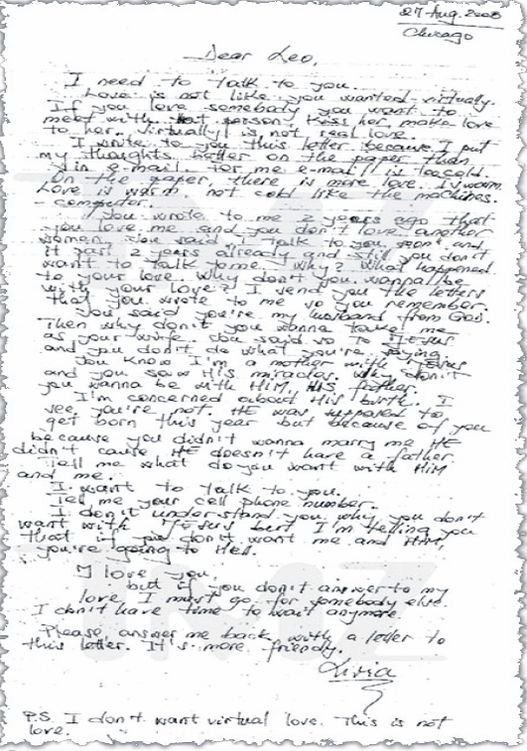 27 Aug. 2008
Chicago
Dear Leo,
I need to talk to you.
Love is not like you wanted - virtually.
If you love somebody you want to
meet with person, kiss her, make love
to her. Virtually is not real love.
I wrote to you this letter because I put
my thoughts better on the paper than
in e-mail. For me e-mail is too cold.
On the paper, there is more love. Is warm.
Love is warm not cold like the machines.
- computer.
You wrote to me 2 years ago that
you love me and you don't love another
women. You said I talk to you soon and
it past 2 years already and still you don't
want to talk to me. Why? What happened
to your love. Why don't you wanna be
with your love? I send you the letters
that you wrote to me so you remember.
You said you're my husband from God.
Then why don't you wanna take me
as your wife. You said so to Jesus
and you don't do what you're saying.
You know I'm a mother with Jesus
and you saw His miracles. Why don't
you wanna be with HIM, HIS father.
I'm concerned about His birth. I
see you're not. HE was supposed to
get born this year but because of you
because you didn't wanna marry me HE
didn't cause HE doesn't have a father.
Tell me what do you want with HIM
and me.
I want to talk to you.
Tell me your cell phone number.
I don't understand you why you don't
want with Jesus but I'm telling you
that if you don't want me and HIM,
you're going to Hell.
I love you
but if you don't answer to my
love I must go for somebody else.
I don't have time to wait anymore
Please, answer me back with a letter to
this letter. It's more friendly.
Livia
P.S. I don't want virtual love. This is not
love.
TMZ